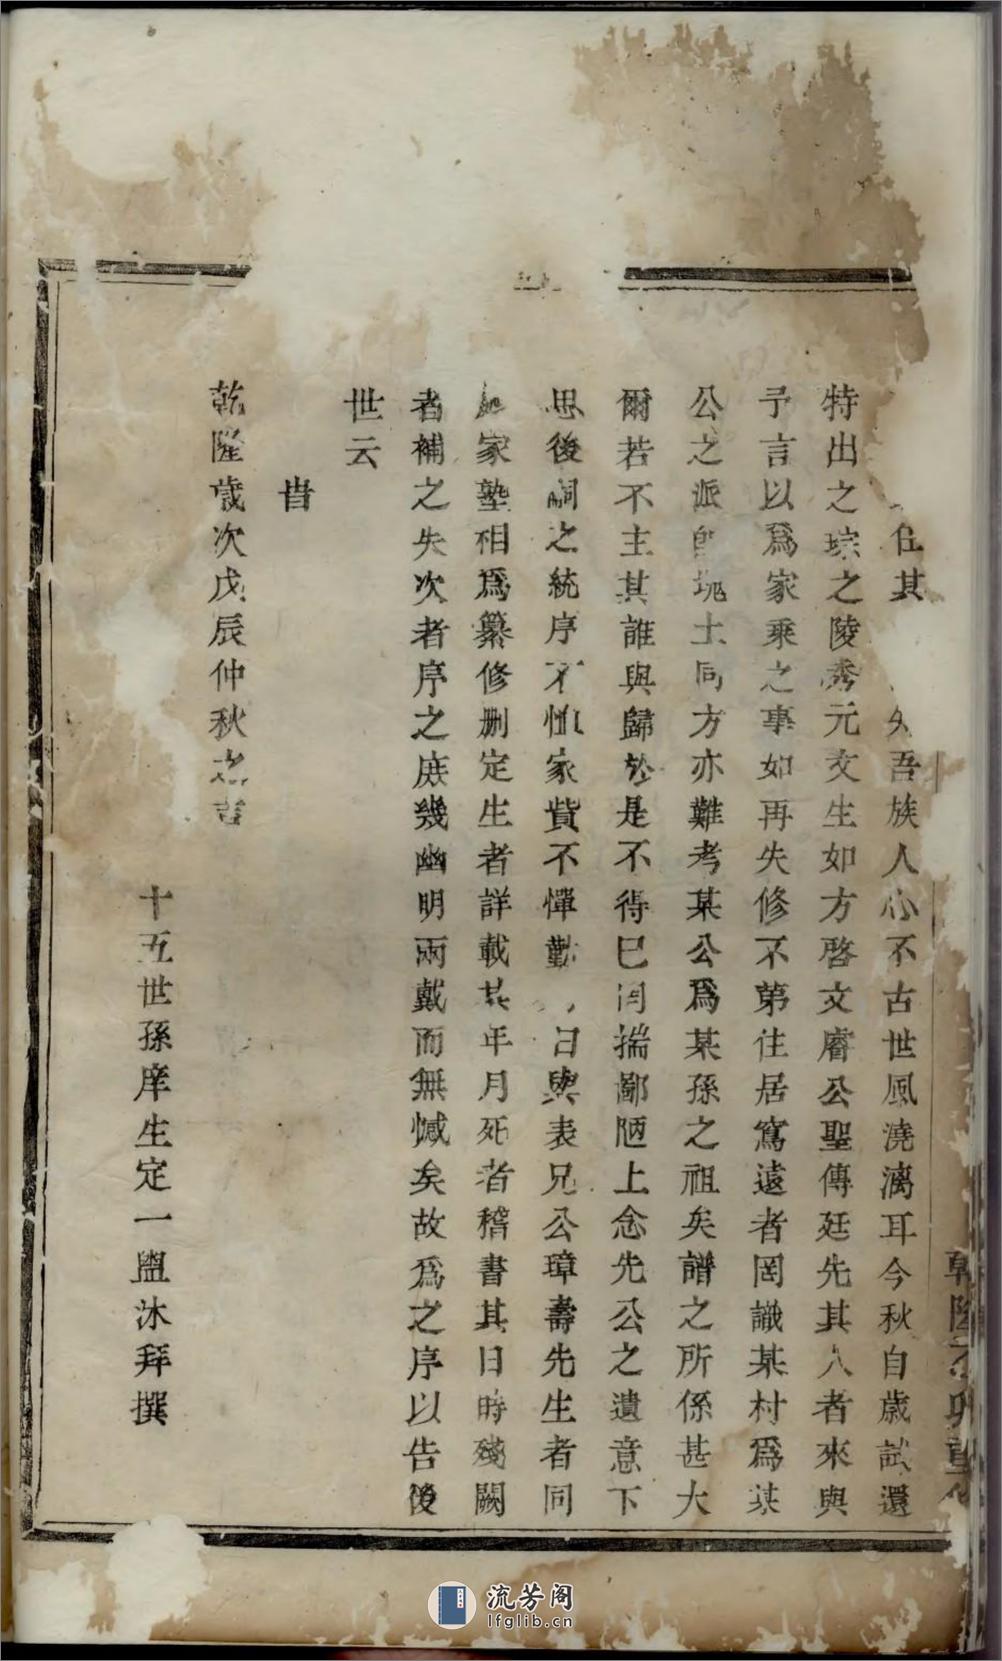 乾隆乙卯重修
任其 吾族人心不古世風澆漓耳今秋自歳試還
特出之琮之陵秀元文生如方啓文睿公聖傳廷先其人者來與
予言以爲家乘之事如再失修不第住居窵遠者罔識某村爲某
公之派卽塊土同方亦難考某公爲某孫之祖矣譜之所係甚大
爾若不主其誰與歸於是不得已 揣鄙陋上念先公之遺意下
思後嗣之統序不惟家貲不憚勤 日與表兄公璋壽先生者同
家塾相爲纂修刪定生者詳載其年月死者稽書其日時殘闕
者補之失次者序之庶幾幽明兩戴而無憾矣故爲之序以告後
世云
旹
乾隆歳次戊辰仲秋之吉
十五世孫庠生定一盥沐拜撰
流芳阁
lfglib.cn